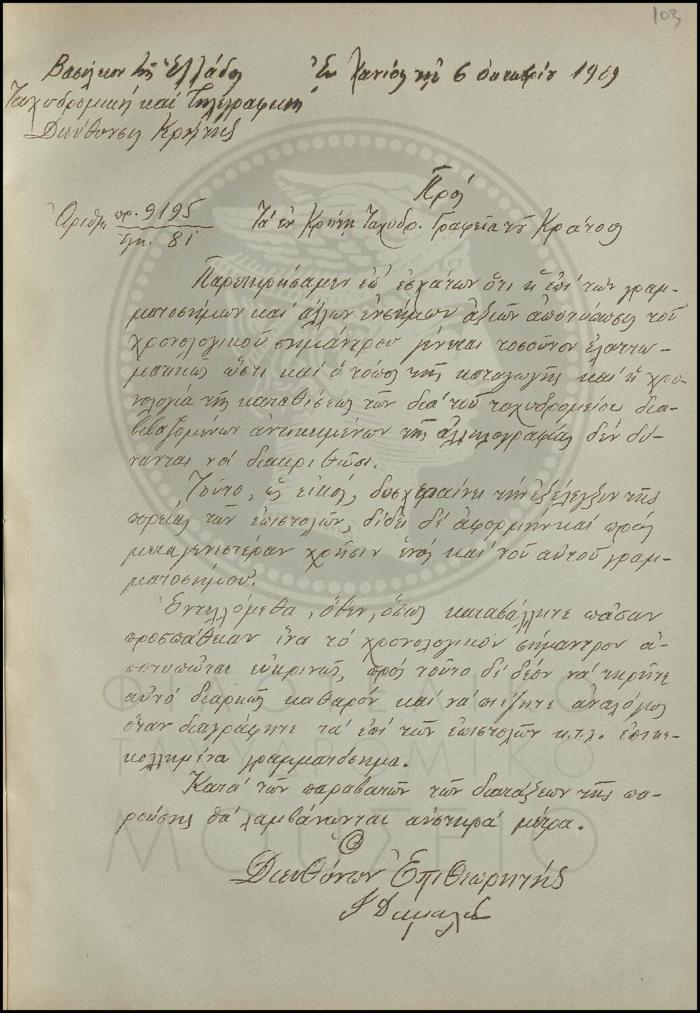 103
Βασίλειον τῆς Ἑλλάδος Ἐν Χανίοις τῇ 6 Ὀκτωβρίου 1909
Ταχυδρομική καί Τηλεγραφική
Διεύθυνσις Κρήτης
Πρός
Ἀριθμ. πρ. 9195 Τά ἐν Κρήτῃ Ταχυδρ. Γραφεῖα τοῦ Κράτους
τηλ. 81
Παρετηρήσαμεν ἐπ' ἐσχάτων ὅτι ἡ ἐπί τῶν γραμ-
ματοσήμων καί ἄλλων ἐνσήμων ἀξιῶν ἀποτύπωσις τοῦ
χρονολογικοῦ σημάντρου γίνεται τοσοῦτον ἐλαττω-
ματικῶς ὥστε καί ὁ τόπος τῆς καταγωγῆς καί ἡ χρο-
νολογία τῆς καταθέσεως τῶν διά τοῦ ταχυδρομείου δια-
βιβαζομένων ἀντικειμένων τῆς ἀλληλογραφίας δέν δύ-
νανται νά διακριθῶσι.
Τοῦτο, ὡς εἰκός, δυσχεραίνει τήν ἐξέλεγξιν τῆς
πορείας τῶν ἐπιστολῶν, δίδει δέ ἀφορμήν καί πρός
μεταγενεστέραν χρῆσιν ἑνός καί τοῦ αὐτοῦ γραμ-
ματοσήμου.
Ἐντελλόμεθα, ὅθεν, ὅπως καταβάλητε πᾶσαν
προσπάθειαν ἵνα τό χρονολογικόν σήμαντρον ἀ-
ποτυπῶται εὐκρινῶς, πρός τοῦτο δέ δέον νά τηρῆτε
αὐτό διαρκῶς καθαρόν καί νά πιέζητε ἀναλόγως
ὅταν διαγράφητε τά ἐπί τῶν ἐπιστολῶν κ.τ.λ. ἐπικε-
κολλημένα γραμματόσημα.
Κατά τῶν παραβατῶν τῶν διατάξεων τῆς πα-
ρούσης θά λαμβάνωνται αὐστηρά μέτρα.
Ὁ
Διευθύνων Ἐπιθεωρητής
ΤΑΧΥΔΡΟΜΙΚΟ
ΜΟΥΣΕΙΟ